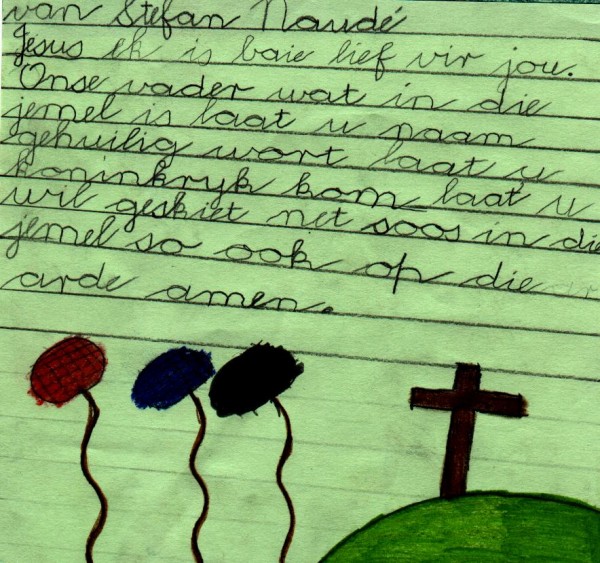 van Stefan Naudé
Jesus ek is baie lief vir jou.
Onse vader wat in die
jemel is laat u naam
gehuilig wort laat u
koninkryk kom laat u
wil geskiet net soos in die
jemel so ook op die
arde amen.